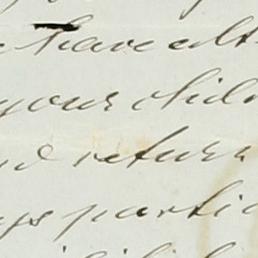 have alt
your child
nd return
gs partic